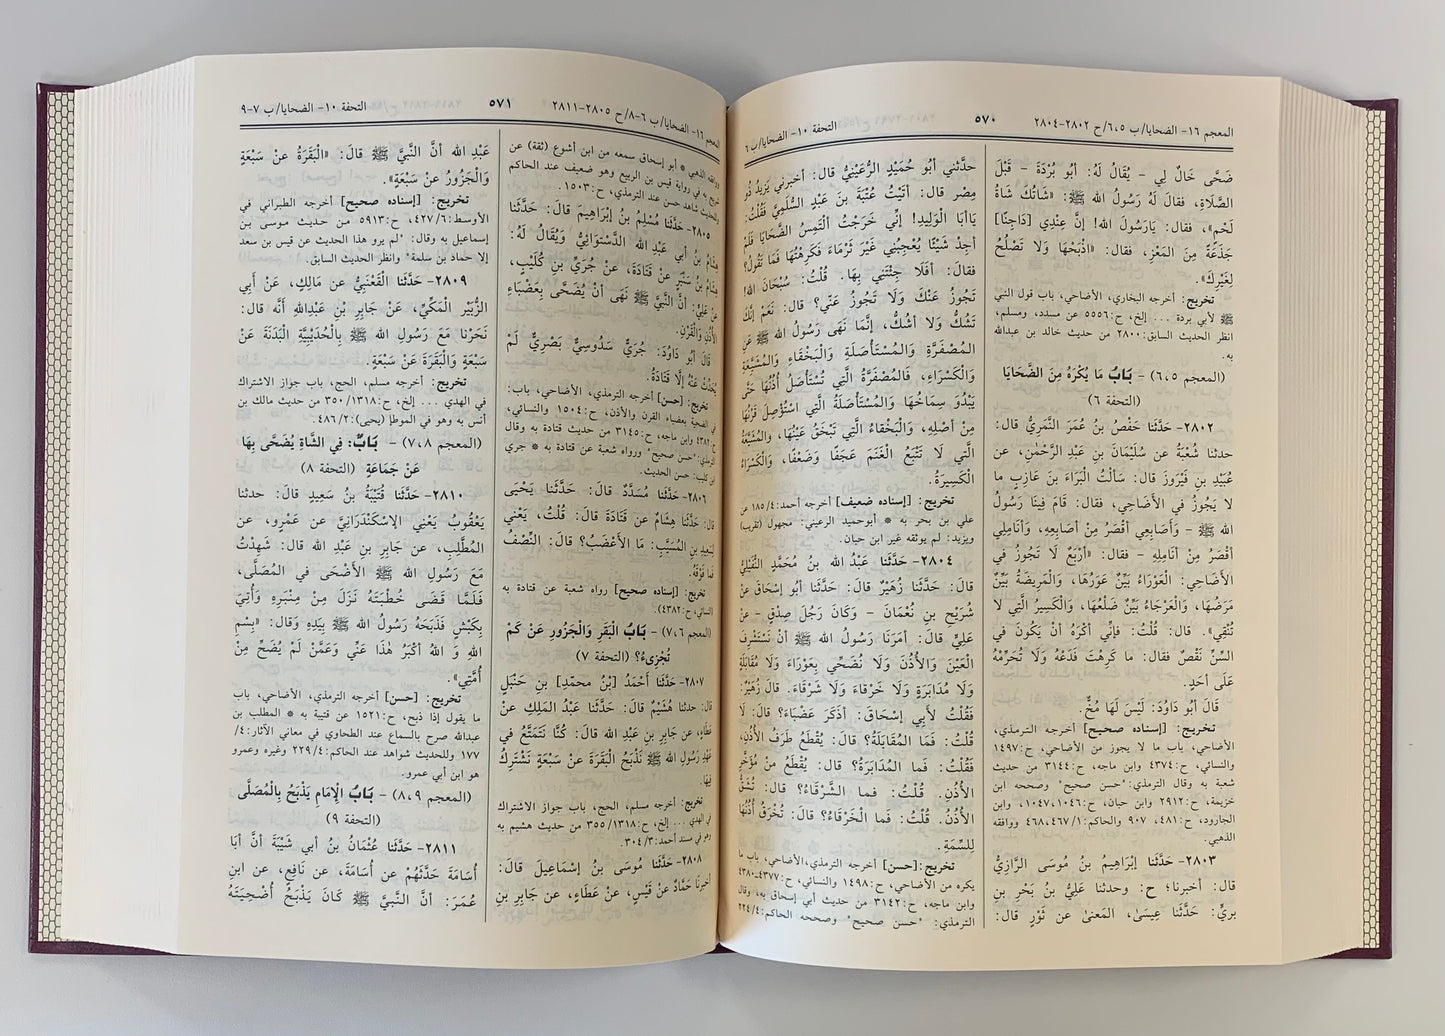 المعجم ١٦- الضحايا/ ب ٦،٥/ح ٢٨٠٢-٢٨٠٤
٥٧٠
التحفة ١٠- الضحايا/ ب ٦
ضَحَّى خَالٌ لِي - يُقَالُ لَهُ: أَبُو بُرْدَةَ - قَبْلَ
الصَّلَاةِ، فقالَ لَهُ رَسُولُ الله ﷺ: «شَاتُكَ شَاةُ
لَحْمٍ»، فقال: يَارَسُولَ الله! إنَّ عِنْدِي [دَاجِنًا]
جَذَعَةً مِنَ المَعْزِ، فقال: «اذْبَحْهَا وَلَا تَصْلُحُ
لِغَيْرِكَ».
تخريج: أخرجه البخاري، الأضاحي، باب قول النبي
ﷺ لأبي بردة ... إلخ، ح:٥٥٥٦ عن مسدد، ومسلم،
انظر الحديث السابق:٢٨٠٠ من حديث خالد بن عبدالله
به.
(المعجم ٦،٥) - بَابُ مَا يُكْرَهُ مِنَ الضَّحَايَا
(التحفة ٦)
٢٨٠٢- حَدَّثَنا حَفْصُ بنُ عُمَرَ النَّمَرِيُّ قال:
حدثنا شُعْبَةُ عن سُلَيْمَانَ بنِ عَبْدِ الرَّحْمٰنِ، عن
عُبَيْدِ بنِ فَيْرُوزَ قال: سَأَلْتُ الْبَرَاءَ بنَ عَازِبٍ ما
لا يَجُوزُ في الأَضَاحِي، فقال: قَامَ فِينَا رَسُولُ
الله ﷺ - وَأَصَابِعِي أَقْصَرُ مِنْ أَصَابِعِهِ، وَأَنَامِلِي
أَقْصَرُ مِنْ أَنَامِلِهِ - فقال: «أَرْبَعٌ لا تَجُوزُ في
الأَضَاحِي: الْعَوْرَاءُ بَيِّنٌ عَوَرُهَا، وَالْمَرِيضَةُ بَيِّنٌ
مَرَضُهَا، وَالْعَرْجَاءُ بَيِّنٌ ضَلْعُهَا، وَالْكَسِيرُ الَّتِي لا
تُنْقِي». قال: قُلْتُ: فإنِّي أَكْرَهُ أَنْ يَكُونَ في
السِّنِّ نَقْصٌ فقال: ما كَرِهْتَ فَدَعْهُ وَلا تُحَرِّمْهُ
عَلَى أَحَدٍ.
قَالَ أَبُو دَاوُدَ: لَيْسَ لَهَا مُخٌّ.
تخريج: [إسناده صحيح] أخرجه الترمذي،
الأضاحي، باب ما لا يجوز من الأضاحي، ح:١٤٩٧
والنسائي، ح:٤٣٧٤ وابن ماجه، ح:٣١٤٤ من حديث
شعبة به وقال الترمذي:"حسن صحيح" وصححه ابن
خزيمة، ح:٢٩١٢ وابن حبان، ح:١٠٤٦، ١٠٤٧، وابن
الجارود، ح:٤٨١، ٩٠٧ والحاكم:١/٤٦٧، ٤٦٨ ووافقه
الذهبي.
٢٨٠٣- حَدَّثَنا إبْرَاهِيمُ بنُ مُوسَى الرَّازِيُّ
قال: أخبرنا؛ ح: وحدثنا عَلِيُّ بنُ بَحْرِ بنِ
بريِّ: حَدَّثَنا عِيسَى، المَعنىٰ عن ثَوْرٍ قال:
حَدَّثَني أَبُو حُمَيْدٍ الرُّعَيْنِيُّ قال: أخبرني يَزِيدُ ذُو
مِصْرَ قال: أَتَيْتُ عُتْبَةَ بْنَ عَبْدٍ السُّلَمِيَّ فَقُلْتُ:
يَاأبَا الْوَلِيدِ! إنِّي خَرَجْتُ أَلْتَمِسُ الضَّحَايَا فَلَمْ
أَجِدْ شَيْئًا يُعْجِبُنِي غَيْرَ ثَرْمَاءَ فَكَرِهْتُهَا، فَمَا تَقُولُ؟
فقال: أَفَلَا جِئْتَنِي بِهَا. قُلْتُ: سُبْحَانَ الله!
تَجُوزُ عَنْكَ وَلَا تَجُوزُ عَنِّي؟ قال: نَعَمْ إنَّكَ
تَشُكُّ وَلَا أَشُكُّ، إنَّمَا نَهَى رَسُولُ الله ﷺ عنِ
المُصْفَرَّةِ وَالمُسْتَأْصَلَةِ وَالْبَخْقَاءِ وَالمُشَيَّعَةِ
وَالْكَسْرَاءِ، فَالمُصْفَرَّةُ الَّتِي تُسْتَأْصَلُ أُذُنُهَا حَتَّى
يَبْدُوَ سِمَاخُهَا، وَالمُسْتَأْصَلَةُ الَّتِي اسْتُؤْصِلَ قَرْنُهَا
مِنْ أَصْلِهِ، وَالْبَخْقَاءُ الَّتِي تُبْخَقُ عَيْنُهَا، وَالمُشَيَّعَةُ
الَّتِي لَا تَتْبَعُ الْغَنَمَ عَجَفًا وَضَعْفًا، وَالْكَسْرَاءُ
الْكَسِيرَةُ.
تخريج: [إسناده ضعيف] أخرجه أحمد:٤/١٨٥ عن
علي بن بحر به * أبوحميد الرعيني: مجهول (تقريب)
ويزيد: لم يوثقه غير ابن حبان.
٢٨٠٤- حَدَّثَنا عَبْدُ الله بنُ مُحَمَّدٍ النُّفَيْلِيُّ
قالَ: حَدَّثَنا زُهَيْرٌ قال: حَدَّثَنا أبُو إسْحَاقَ عن
شُرَيْحِ بنِ نُعْمَانَ - وَكَانَ رَجُلَ صِدْقٍ - عن
عَلِيٍّ قالَ: أمَرَنَا رَسُولُ الله ﷺ أنْ نَسْتَشْرِفَ
الْعَيْنَ وَالأُذُنَ وَلَا نُضَحِّي بِعَوْرَاءَ وَلَا مُقَابَلَةٍ
وَلَا مُدَابَرَةٍ وَلَا خَرْقَاءَ وَلَا شَرْقَاءَ. قال زُهَيْرٌ:
فَقُلْتُ لِأبِي إسْحَاقَ: أذَكَرَ عَضْبَاءَ؟ قال: لَا
قُلْتُ: فَمَا المُقَابَلَةُ؟ قال: يُقْطَعُ طَرَفُ الأُذُنِ.
فَقُلْتُ: فَما المُدَابَرَةُ؟ قال: يُقْطَعُ مِنْ مُؤَخَّرِ
الأُذُنِ. قُلْتُ: فما الشَّرْقَاءُ؟ قال: تُشَقُّ
الأُذُنُ. قُلْتُ: فمَا الْخَرْقَاءُ؟ قال: تُخْرَقُ أُذُنُهَا
لِلسِّمَةِ.
تخريج: [حسن] أخرجه الترمذي،الأضاحي، باب ما
يكره من الأضاحي، ح:١٤٩٨ والنسائي، ح:٤٣٧٧-٤٣٨٠
وابن ماجه، ح:٣١٤٢ من حديث أبي إسحاق به، وقال
الترمذي: "حسن صحيح" وصححه الحاكم:٤/٢٢٤
المعجم ١٦- الضحايا/ ب ٦-٨/ح ٢٨٠٥-٢٨١١
٥٧١
التحفة ١٠- الضحايا/ ب ٧-٩
ووافقه الذهبي * أبو إسحاق سمعه من ابن أشوع (ثقة) عن
شريح به في رواية قيس بن الربيع وهو ضعيف عند الحاكم
وللحديث شاهد حسن عند الترمذي، ح:١٥٠٣.
٢٨٠٥- حَدَّثَنا مُسْلِمُ بنُ إبْرَاهِيمَ قالَ: حَدَّثَنَا
هِشَامُ بنُ أبي عَبْدِ الله الدَّسْتَوَائِيُّ وَيُقَالُ لَهُ:
هِشَامُ بنُ سَنْبَرٍ عن قَتَادَةَ، عن جُرَيِّ بنِ كُلَيْبٍ،
عن عَلِيٍّ: أنَّ النَّبيَّ ﷺ نَهَى أنْ يُضَحَّى بِعَضْبَاءِ
الأُذُنِ وَالْقَرْنِ.
قالَ أبُو دَاوُدَ: جُرَيٌّ سَدُوسِيٌّ بَصْرِيٌّ لَمْ
يُحَدِّثْ عَنْهُ إلَّا قَتَادَةُ.
تخريج: [حسن] أخرجه الترمذي، الأضاحي، باب:
في الضحية بعضباء القرن والأذن، ح:١٥٠٤ والنسائي،
ح:٤٣٨٢ وابن ماجه، ح:٣١٤٥ من حديث قتادة به وقال
الترمذي:"حسن صحيح" ورواه شعبة عن قتادة به * جري
ابن كليب: حسن الحديث.
٢٨٠٦- حَدَّثَنا مُسَدَّدٌ قالَ: حَدَّثَنا يَحْيَى
قال: حَدَّثَنا هِشَامٌ عن قَتَادَةَ قالَ: قُلْتُ، يَعْنِي
لِسَعِيدِ بنِ المُسَيَّبِ: مَا الأَعْضَبُ؟ قال: النِّصْفُ
فَمَا فَوْقَهُ.
تخريج: [إسناده صحيح] رواه شعبة عن قتادة به
(النسائي، ح:٤٣٨٢).
(المعجم ٧،٦) - بَابُ الْبَقَرِ وَالْجَزُورِ عَنْ كَمْ
تُجْزِىءُ؟ (التحفة ٧)
٢٨٠٧- حَدَّثَنا أَحْمَدُ [بْنُ محمدِ] بنِ حَنْبَلٍ
قال: حدثنا هُشَيْمٌ قال: حَدَّثَنا عَبْدُ المَلِكِ عن
عَطَاءٍ، عن جَابِرِ بنِ عَبْدِ الله قالَ: كُنَّا نَتَمَتَّعُ في
عَهْدِ رَسُولِ الله ﷺ نَذْبَحُ الْبَقَرَةَ عن سَبْعَةٍ نَشْتَرِكُ
فِيهَا.
تخريج: أخرجه مسلم، الحج، باب جواز الاشتراك
في الهدي ... إلخ، ح:١٣١٨/٣٥٥ من حديث هشيم به
وهو في مسند أحمد:٣/٣٠٤.
٢٨٠٨- حَدَّثَنا مُوسَى بنُ إسْمَاعِيلَ قالَ:
أخبرنَا حَمَّادٌ عنْ قَيْسٍ، عن عَطَاءٍ، عن جَابِرِ بنِ
عَبْدِ الله أنَّ النَّبيَّ ﷺ قالَ: «الْبَقَرَةُ عنْ سَبْعَةٍ
وَالْجَزُورُ عنْ سَبْعَةٍ».
تخريج: [إسناده صحيح] أخرجه الطبراني في
الأوسط:٦/٤٢٧، ح:٥٩١٣ من حديث موسى بن
إسماعيل به وقال: "لم يرو هذا الحديث عن قيس بن سعد
إلا حماد بن سلمة" وانظر الحديث السابق.
٢٨٠٩- حَدَّثَنا الْقَعْنَبِيُّ عن مَالِكٍ، عَنْ أبِي
الزُّبَيْرِ المَكِّيِّ، عن جَابِرِ بنِ عَبْدِاللهِ أَنَّه قالَ:
نَحَرْنَا مَعَ رَسُولِ الله ﷺ بِالْحُدَيْبِيَّةِ الْبَدَنَةَ عنْ
سَبْعَةٍ وَالْبَقَرَةَ عَنْ سَبْعَةٍ.
تخريج: أخرجه مسلم، الحج، باب جواز الاشتراك
في الهدي ... إلخ، ح:١٣١٨/٣٥٠ من حديث مالك بن
أنس به وهو في الموطإ (يحيى):٢/٤٨٦.
(المعجم ٧،٨) - بَابٌ: فِي الشَّاةِ يُضَحَّى بِهَا
عَنْ جَمَاعَةٍ (التحفة ٨)
٢٨١٠- حَدَّثَنا قُتَيْبَةُ بنُ سَعِيدٍ قالَ: حدثنا
يَعْقُوبُ يَعْنِي الإسْكَنْدَرَانِيَّ عن عَمْرٍو، عن
المُطَّلِبِ، عن جَابِرِ بنِ عَبْدِ الله قال: شَهِدْتُ
مَعَ رَسُولِ الله ﷺ الأَضْحَى في المُصَلَّى،
فَلَمَّا قَضَى خُطْبَتَهُ نَزَلَ مِنْ مِنْبَرِهِ وَأُتِيَ
بِكَبْشٍ فَذَبَحَهُ رَسُولُ الله ﷺ بِيَدِهِ وقَالَ: «بِسْمِ
اللهِ وَ اللهُ أكْبَرُ هٰذَا عَنِّي وَعَمَّنْ لَمْ يُضَحِّ مِنْ
أُمَّتِي».
تخريج: [حسن] أخرجه الترمذي، الأضاحي، باب
ما يقول إذا ذبح، ح:١٥٢١ عن قتيبة به * المطلب بن
عبدالله صرح بالسماع عند الطحاوي في معاني الآثار:٤/
١٧٧ وللحديث شواهد عند الحاكم:٤/٢٢٩ وغيره وعمرو
هو ابن أبي عمرو.
(المعجم ٨،٩) - بَابُ الْإمَامِ يَذْبَحُ بِالْمُصَلَّى
(التحفة ٩)
٢٨١١- حَدَّثَنا عُثْمَانُ بنُ أبي شَيْبَةَ أنَّ أبَا
أُسَامَةَ حَدَّثَهُمْ عن أُسَامَةَ، عن نَافِعٍ، عن ابنِ
عُمَرَ: أنَّ النَّبيَّ ﷺ كَانَ يَذْبَحُ أُضْحِيَتَهُ